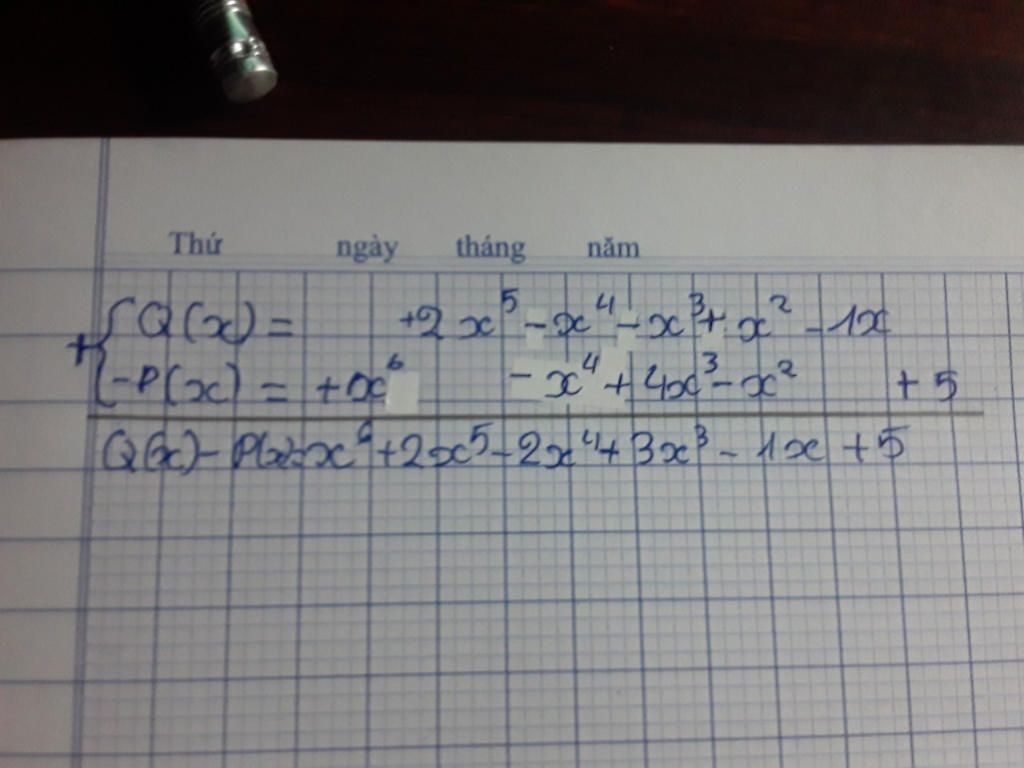 Thứ ngày tháng năm
+{ Q(x) = +2x⁵ - x⁴ - x³ + x² - 1x
-P(x) = +x⁶ - x⁴ + 4x³ - x² + 5
Q(x) - P(x) = x⁶ + 2x⁵ - 2x⁴ + 3x³ - 1x + 5